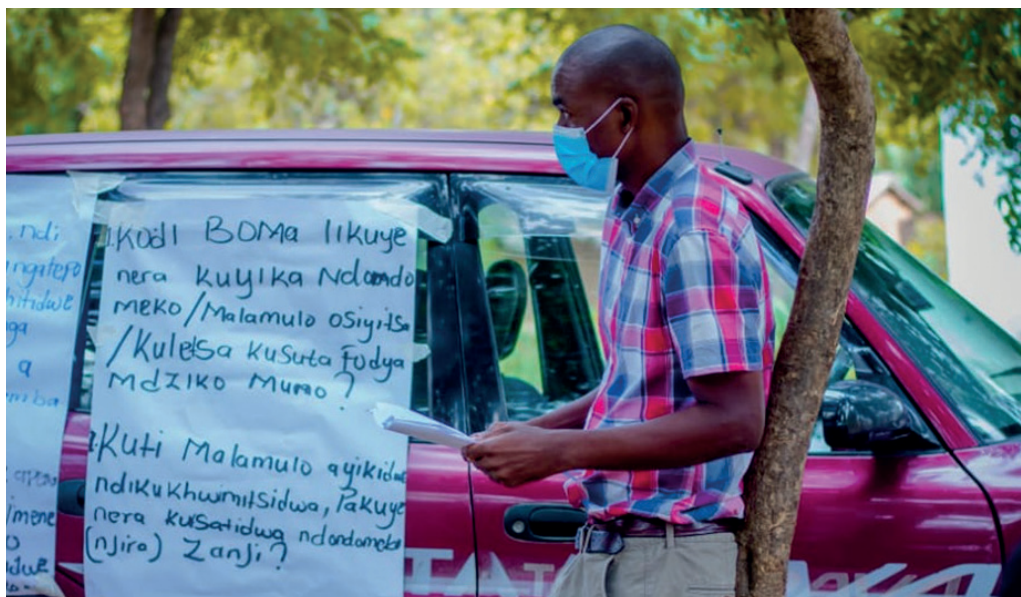 ndi
ngatepo
hitidwe
nga
a
emba
1.Kodi BOMa likuye
nera kuyika Ndondo
meko/Malamulo osiyitsa
/Kuletsa kusuta fodya
Mdziko Muno?
2.Kuti Malamulo ayikidwe
ndikukhwimitsidwa, Pakuye
nera kutsatidwa ndondomeko
(njira) Zanji?
imene